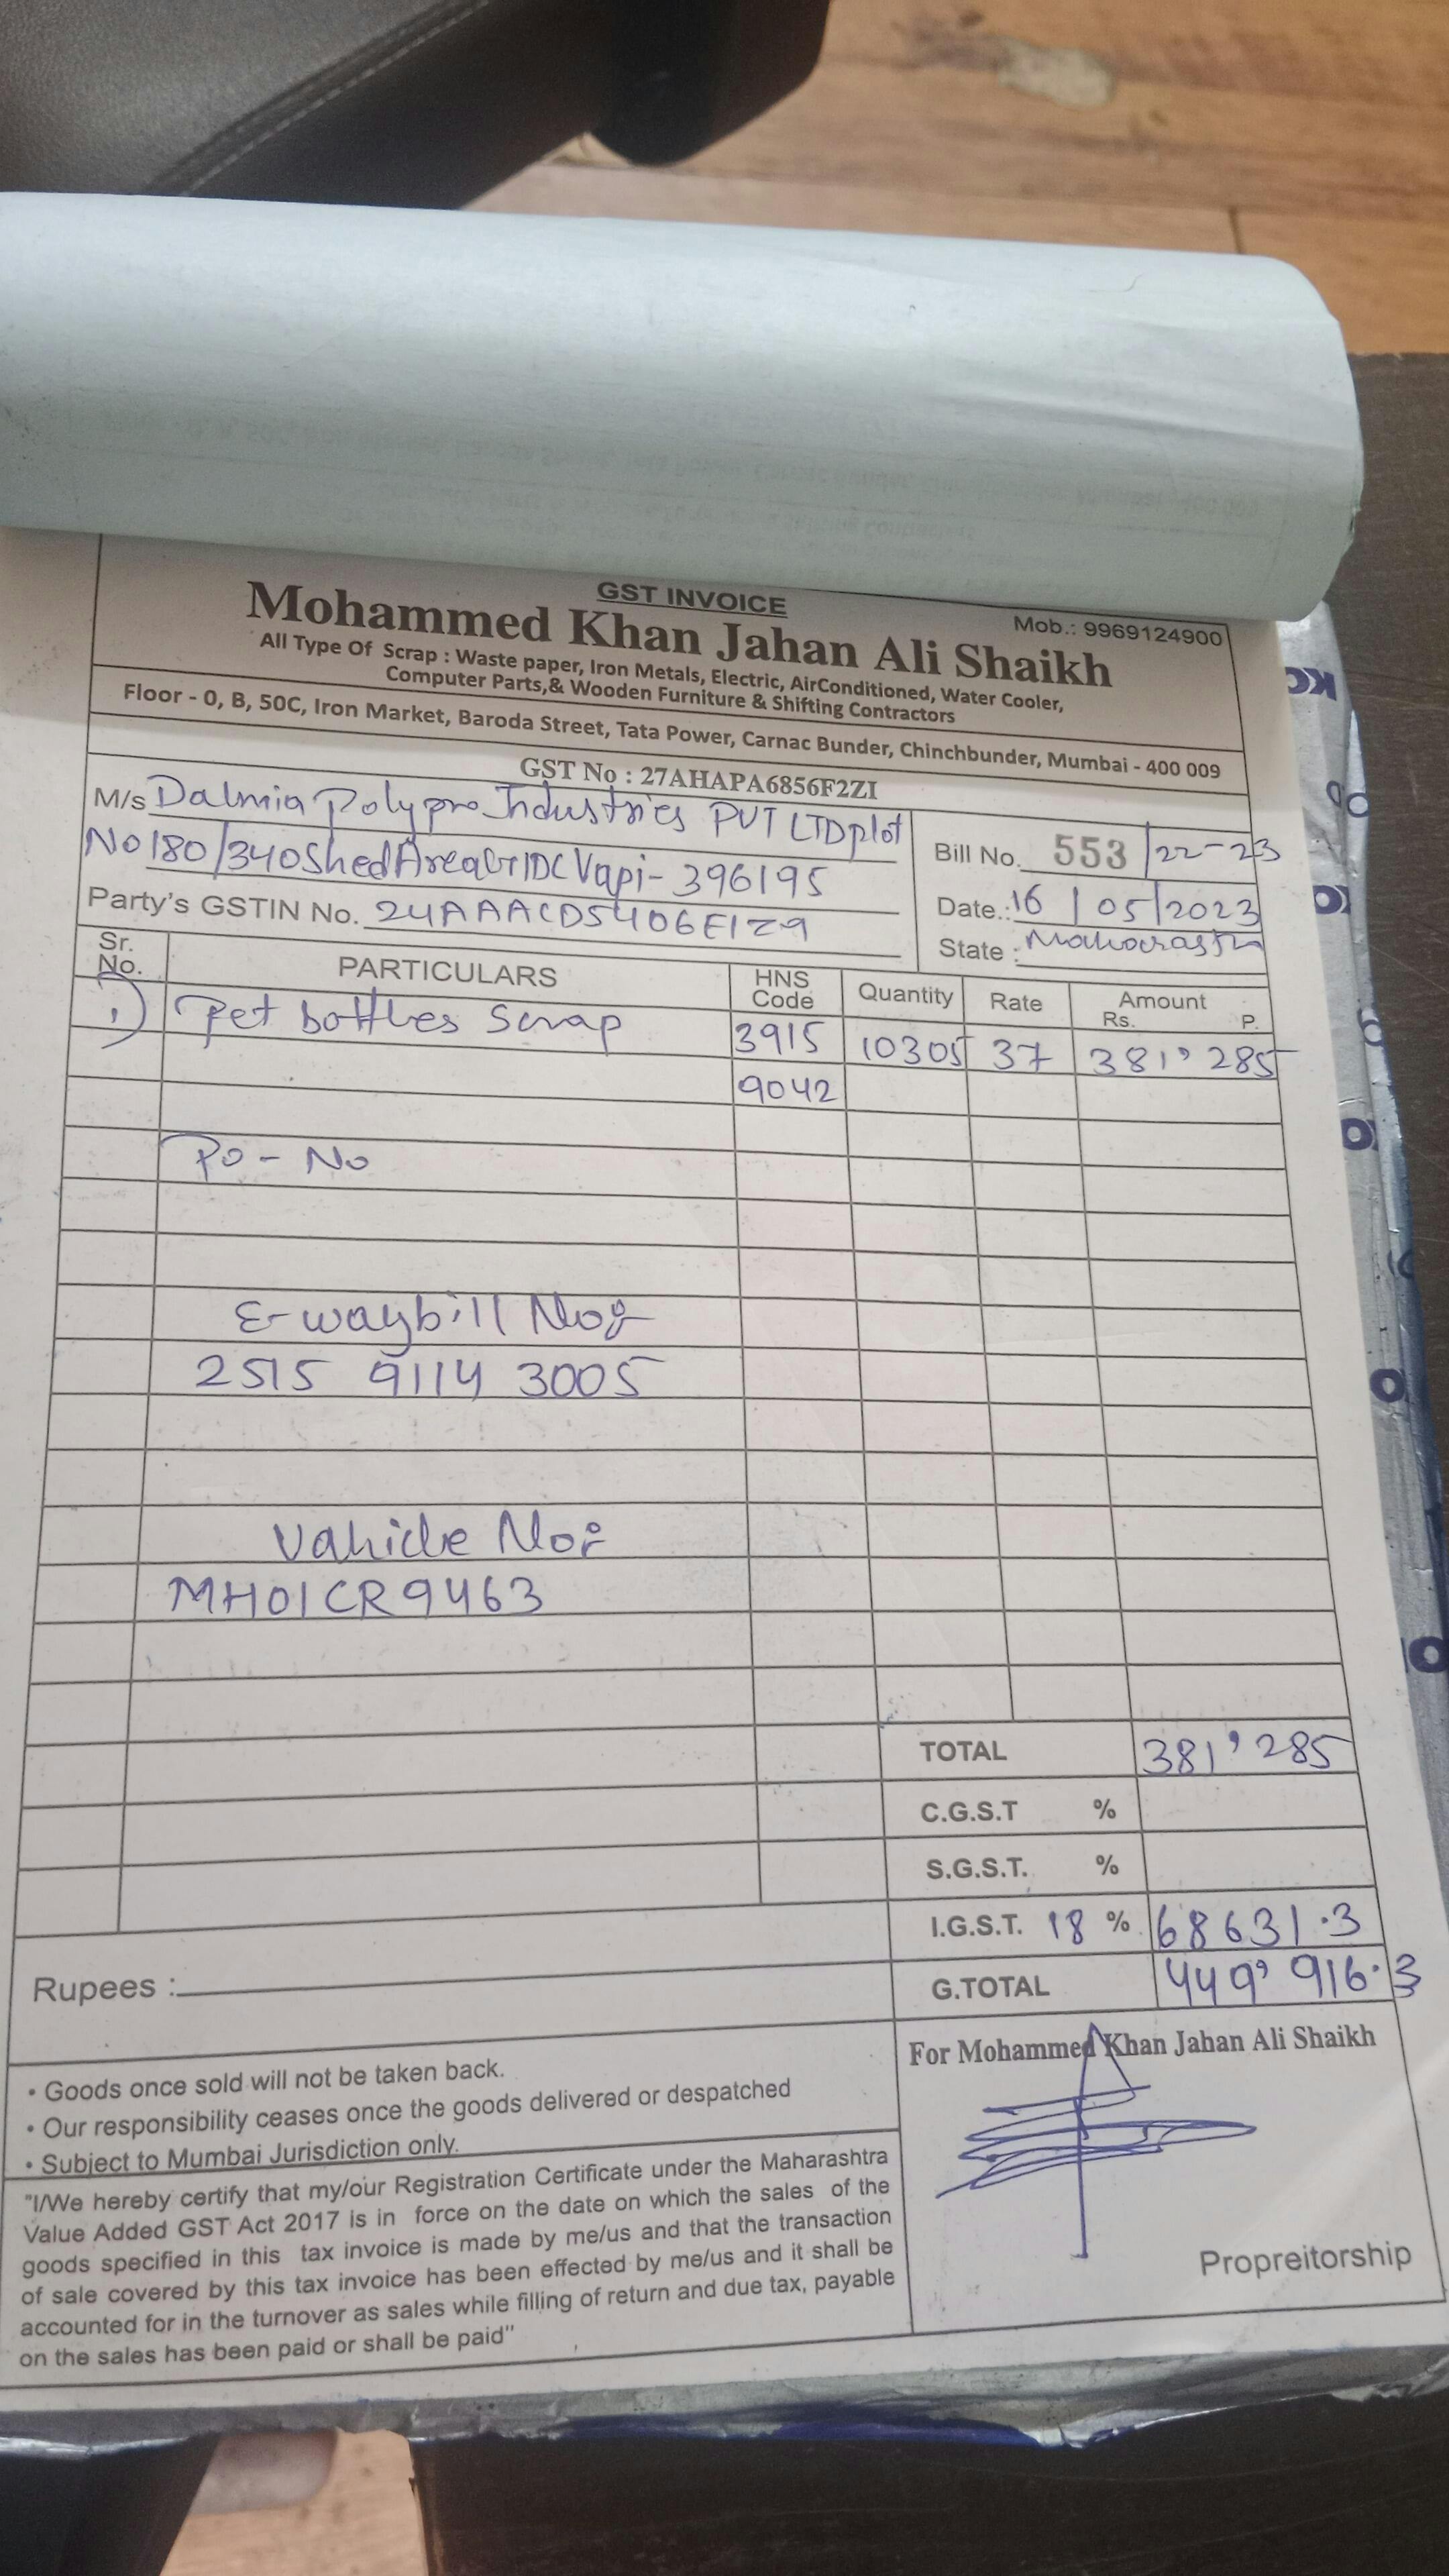 GST INVOICE
Mob.: 9969124900
Mohammed Khan Jahan Ali Shaikh
All Type Of Scrap : Waste paper, Iron Metals, Electric, AirConditioned, Water Cooler,
Computer Parts,& Wooden Furniture & Shifting Contractors
Floor - 0, B, 50C, Iron Market, Baroda Street, Tata Power, Carnac Bunder, Chinchbunder, Mumbai - 400 009
GST No : 27AHAPA6856F2ZI
M/s Dalmia Polypro Industries PVT LTD plot
No 180/340 Shed Area GIDC Vapi- 396195
Party's GSTIN No. 24AAACD5406E1Z9
Bill No. 553 /22-23
Date.: 16 / 05/2023
State :
Sr. No. PARTICULARS HNS Code Quantity Rate Amount Rs. P.
1) Pet bottles Scrap 3915 10305 37 381,285
9042
Po - No
E-waybill No:
2515 9114 3005
Vahicle No:
MH01CR9463
TOTAL 381,285
C.G.S.T %
S.G.S.T. %
I.G.S.T. 18 % 68631.3
G.TOTAL 449,916.3
Rupees :
For Mohammed Khan Jahan Ali Shaikh
• Goods once sold will not be taken back.
• Our responsibility ceases once the goods delivered or despatched
• Subject to Mumbai Jurisdiction only.
"I/We hereby certify that my/our Registration Certificate under the Maharashtra
Value Added GST Act 2017 is in force on the date on which the sales of the
goods specified in this tax invoice is made by me/us and that the transaction
of sale covered by this tax invoice has been effected by me/us and it shall be
accounted for in the turnover as sales while filling of return and due tax, payable
on the sales has been paid or shall be paid"
Propreitorship